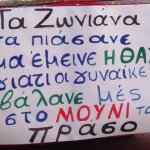 Τα Ζωνιάνα
τα πιάσανε
μα έμεινε Η ΘΑ
γιατί οι γυναίκε
βάλανε μες
στο ΜΟΥΝΙ το
ΠΡΑΣΟ